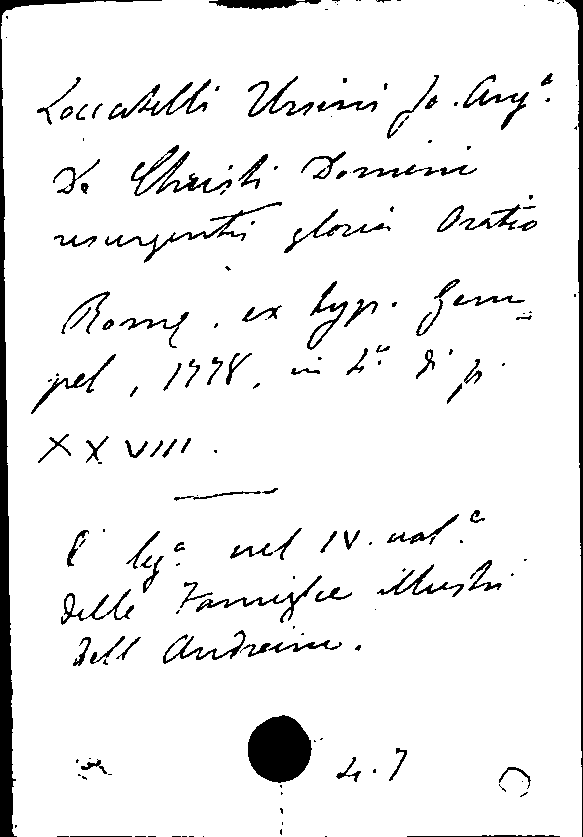 Loccatelli Ursini Jo. Ang.ª
De Christi Domini
resurgentis gloria Oratio
Romę. ex typ. Gem_
pel, 1778, in 4.º di p.
XXVIII.
È leg.º nel IV. vol.e
delle Famiglie illustri
dell Andreini.
4. 7